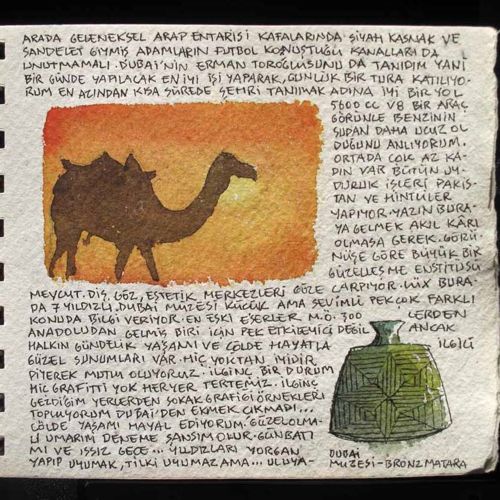 ARADA GELENEKSEL ARAP ENTARISI KAFALARINDA SIYAH KASNAK VE
SANDELET GIYMIŞ ADAMLARIN FUTBOL KONUŞTUĞU KANALLARI DA
UNUTMAMALI. DUBAI'NIN ERMAN TOROĞLUSUNU DA TANIDIM YANI
BIR GÜNDE YAPILACAK EN IYI IŞI YAPARAK, GÜNLÜK BIR TURA KATILIYO-
RUM EN AZINDAN KISA SÜREDE ŞEHRI TANIMAK ADINA IYI BIR YOL
5600 CC V8 BIR ARAÇ
GÖRÜNCE BENZININ
SUDAN DAHA UCUZ OL
DUĞUNU ANLIYORUM.
ORTADA ÇOK AZ KA-
DIN VAR BÜTÜN UY-
DURUK IŞLERI PAKIS-
TAN VE HINTLILER
YAPIYOR. YAZIN BURA-
YA GELMEK AKIL KÂRI
OLMASA GEREK. GÖRÜ
NÜŞE GÖRE BÜYÜK BIR
GÜZELLEŞME ENSTITÜSÜ
MEVCUT. DIŞ, GÖZ, ESTETIK MERKEZLERI GÖZE ÇARPIYOR. LÜX BURA-
DA 7 YILDIZLI. DUBAI MÜZESI KÜÇÜK AMA SEVIMLI PEKÇOK FARKLI
KONUDA BILGI VERIYOR. EN ESKI ESERLER M.Ö. 300 LERDEN
ANADOLUDAN GELMIŞ BIRI IÇIN PEK ETKILEYICI DEĞIL ANCAK
HALKIN GÜNDELIK YAŞAMI VE ÇÖLDE HAYATLA ILGILI
GÜZEL SUNUMLARI VAR. HIÇ YOKTAN IYIDIR
DIYEREK MUTLU OLUYORUZ. ILGINÇ BIR DURUM
HIÇ GRAFITTI YOK HERYER TERTEMIZ. ILGINÇ
GEZDIĞIM YERLERDEN SOKAK GRAFIĞI ÖRNEKLERI
TOPLUYORUM DUBAI'DEN EKMEK ÇIKMADI...
ÇÖLDE YAŞAMI HAYAL EDIYORUM. GÜZEL OLMA-
LI UMARIM DENEME ŞANSIM OLUR. GÜNBATI
MI VE ISSIZ GECE... YILDIZLARI YORGAN
YAPIP UYUMAK, TILKI UYUMAZ AMA... ULUYA-
DUBAI
MÜZESI-BRONZ MATARA